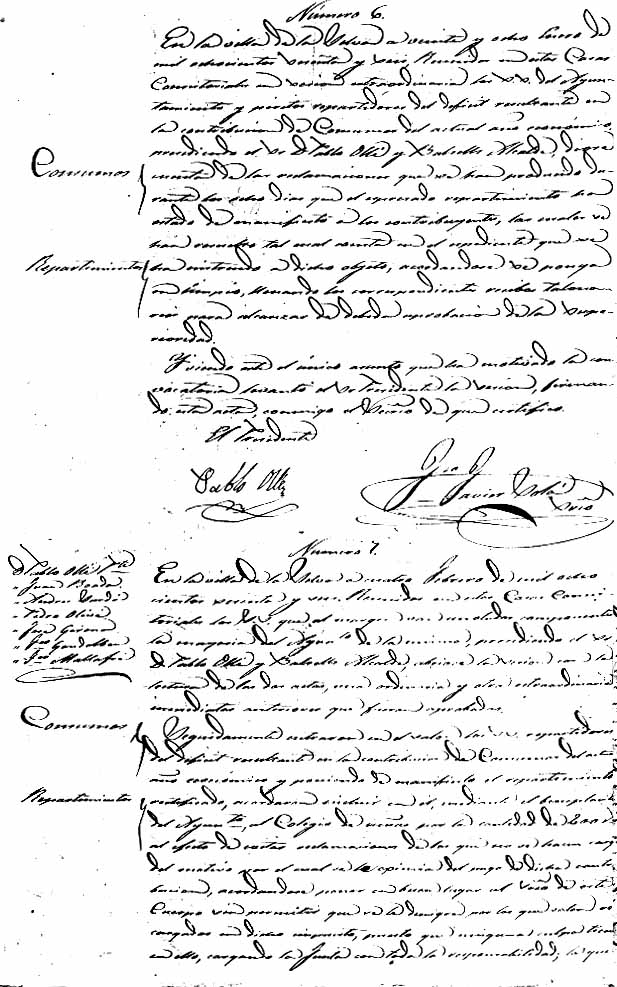 Número 6.
En la villa de la Selva a veinte y ocho Enero de
mil ochocientos setenta y seis, Reunidos en estas Casas
Consistoriales en sesión extraordinaria los SS. del Ayun-
tamiento y peritos repartidores del deficit resultante en
la contribución de Consumos del actual año económico,
presidiendo el Sr. D. Pablo Ollé y Alcalde,
Consumos
de las reclamaciones que se han producido du-
rante los ocho dias que el expresado repartimiento ha
estado de manifiesto a los contribuyentes, las cuales se
han resuelto tal cual consta en el expediente que se
Repartimientos
ha instruido a dicho objeto, acordandose se ponga
en limpio, llenando los correspondientes recibos talona-
rios para alcanzar la debida aprobación de la Supe-
rioridad.
Y siendo este el único asunto que ha motivado la con-
vocatoria levantó el Sr. Presidente la sesión, firman-
do esta acta, conmigo el Srio de que certifico.
El Presidente
Pablo Ollé
Javier
Srio
Número 7.
D. Pablo Ollé
" Juan
" Pedro
" José
" Fco
En la villa de la Selva a cuatro Febrero de mil ocho
cientos setenta y seis. Reunidos en estas Casas Consis-
toriales los SS. que al margen van anotados componentes
la mayoria del Ayunto de la misma, presidiendo el Sr.
D. Pablo Ollé y Alcalde, abriose la sesión con la
lectura de las dos actas, una ordinaria y otra extraordinaria
inmediatas anteriores que fueron aprobadas.
Consumos
Seguidamente entraron en el salon los SS. repartidores
del deficit resultante en la contribución de Consumos del actual
año económico y puesto de manifiesto el repartimiento
Repartimientos
rectificado, acordaron incluir en él, mediante el
del Ayunto, al Colegio de por la cantidad de
al efecto de evitar reclamaciones de las que no se hacen cargo
del motivo por el cual se le del pago de dicha contri-
bucion, acordandose poner en buen lugar al Srio de este
Cuerpo sin permitir que se le denigre por los que salen re-
cargados en dicho impuesto, puesto que ninguna culpa tiene
en ello, cargando la Junta con toda la responsabilidad; lo que